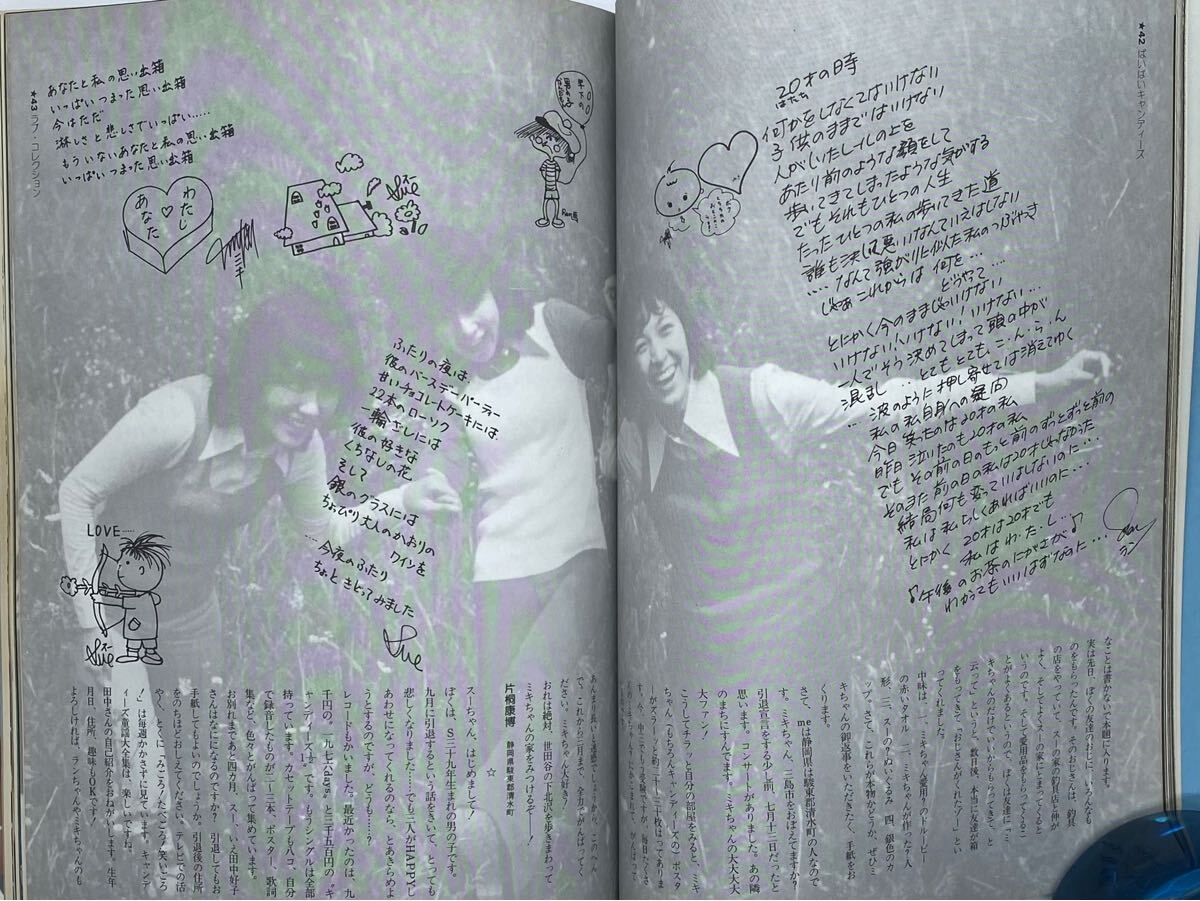 ★42 ばいばいキャンディーズ
20才の時
はたち
何かをしなくてはいけない
子供のままではいけない
人がしいたレールの上を
あたり前のような顔をして
歩いてきてしまったような気がする
でも それもひとつの人生
たったひとつの私の歩いてきた道
誰も決して悪いなんていえはしない
‥‥なんて強がりにも似た私のつぶやき
じゃあ これからは 何を‥‥
どうやって‥‥
とにかく今のままじゃいけない
いけない、いけない！いけない‥‥
一人でそう決めてしまって頭の中が
混乱 ‥‥とてもとても、こ・ん・ら・ん
‥‥波のように押し寄せては消えてゆく
私の私自身への疑問
今日笑ったのは20才の私
昨日泣いたのも20才の私
でも その前の日のもっと前のずっとずっと前の
そのまた前の日の私は20才じゃなかった
結局何も変っていはしないのに‥‥
私は私らしくあればいいのに‥‥
とにかく 20才は20才でも
私はわ・た・し‥‥
♪午後のお茶のにがさが♪
わかってもいいはずなのに‥‥
ラン
なことは書かないで本題に入ります。
実は先日、ぼくの友達のおじに、いろんなも
のをもらったんです。そのおじさんは、釣具
の店をやっていて、スーの家の釣具店と仲が
よく、そしてよくスーの家にとまってくると
いうのです。そして愛用品をもらってくるこ
とがよくあるというので、ぼくは友達に「ミ
キちゃんのだけでいいからもらってきてと、
云って」というと、数日後、本当に友達が箱
をもってきて、「おじさんがくれたゾー」とい
ってわたされました。
中味は、一、ミキちゃん愛用？のトルーピー
の赤いタオル 二、ミキちゃんが作った？人
形、三、スーのぬいぐるみ 四、銀色のカ
ップ。さて、これらが本物かどうか、ぜひミ
キちゃんの御返事をいただきたく、手紙をお
くります。
さて、meは静岡県は駿東郡清水町の人なので
す。ミキちゃん、三島市をおぼえてますか？
引退宣言をする少し前、七月十二日だったと
思います。コンサートがありました。あの隣
のまちにすんでます。ミキちゃんの大大大大
大ファン！
こうしてチラッと自分の部屋をみると、ミキ
ちゃんはもちろんキャンディーズの”ポスタ
ーがズラーリーッと約二十～三十枚はってありま
あなたと私の思い出箱
いっぱいつまった思い出箱
今はただ
淋しさと悲しさでいっぱい‥‥‥
もういないあなたと私の思い出箱
いっぱいつまった思い出箱
★43 ラブ・コレクション
わたし
♡
あなた
ミキ
スー
Sue
年下の
男の子
Ran
ふたりの夜は、
彼のバースデーパーティー
甘いチョコレートケーキには
22本のローソク
一輪ざしには
彼の好きな
くちなしの花
そして
銀のグラスには
ちょぴり大人のかおりの
ワインを
‥‥今夜のふたり
ちょときどってみました
Sue
LOVE‥‥
スー
Sue
あんまり長いと迷惑でしょうから、このへん
で。これから三月まで、全力でがんばってく
ださい。ミキちゃん大好き？
おれは絶対、世田谷の下北沢を歩きまわって
ミキちゃんの家をみつけるぞーー！
片桐康博 静岡県駿東郡清水町
☆
スーちゃん、はじめまして！
ぼくは、S三十九年生まれの男の子です。
九月に引退するという話をきいて、とっても
悲しくなりました……でも三人がHAPPYし
あわせになってくれるのなら、とあきらめよ
うとするのですが、どうも……？
レコードもかいました。最近かったのは、九
千円の。一九七六days。と三千五百円の“キ
ャンディーズ1½”です。もうシングルは全部
持っています。カセットテープも八コ、自分
で録音したものが二～三本、ポスター、歌詞
集など、色々とがんばって集めています。
お別れまであと四カ月、スー、いえ田中好子
さんはなにになるのですか？ 引退してもお
手紙してもよいのでしょうか。引退後の住所
をのちほどおしえてください。テレビでの活
やく、とくに「みごろ／たべごろ／笑いごろ
！」は毎週かかさずに見ています。キャンデ
ィーズ童謡大全集は、楽しいですね。
田中さんの自己紹介をおねがいします。生年
月日、住所、趣味もOKです！
よろしければ、ランちゃん、ミキちゃんのも